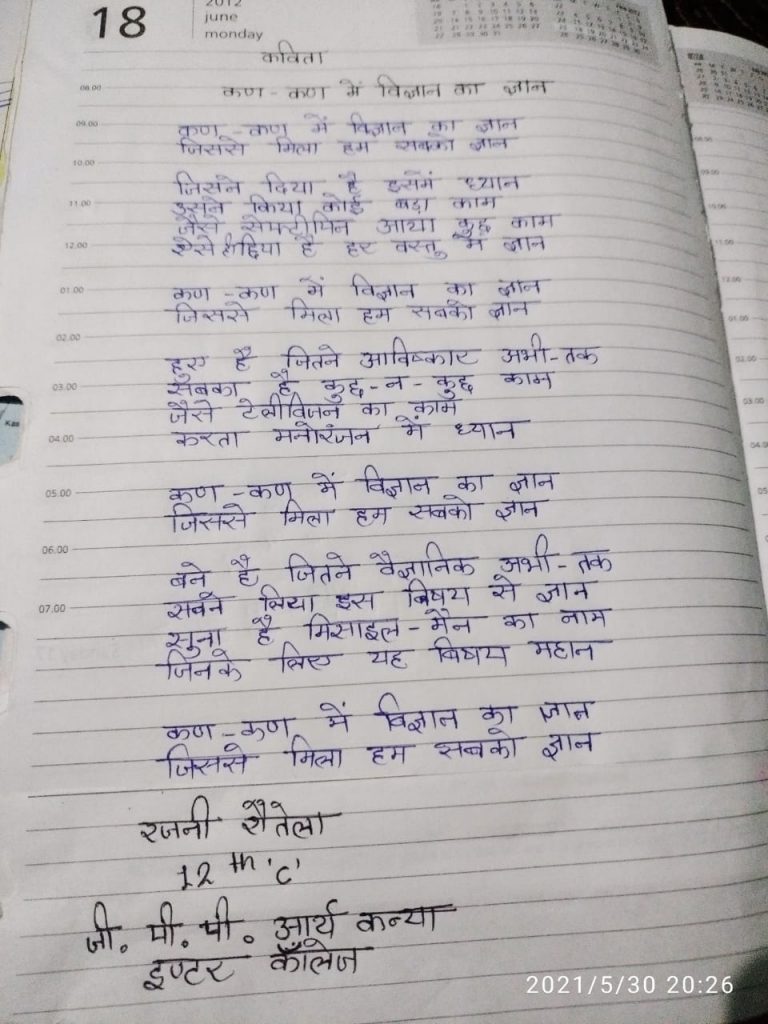 18
2012
june
monday
कविता
कण-कण में विज्ञान का ज्ञान
08.00
09.00
कण-कण में विज्ञान का ज्ञान
जिससे मिला हम सबको ज्ञान
10.00
जिसने दिया है इसमें ध्यान
11.00
उसने किया कोई बड़ा काम
जैसे सेफ्टीपिन आया कुछ काम
12.00
हर वस्तु में ज्ञान
01.00
कण-कण में विज्ञान का ज्ञान
जिससे मिला हम सबको ज्ञान
02.00
हुए है जितने आविष्कार अभी-तक
03.00
सबका है कुछ-न-कुछ काम
जैसे टेलीविजन का काम
04.00
करता मनोरंजन में ध्यान
05.00
कण-कण में विज्ञान का ज्ञान
जिससे मिला हम सबको ज्ञान
06.00
बने है जितने वैज्ञानिक अभी-तक
07.00
सबने लिया इस बिषय से ज्ञान
सुना है मिसाइल-मैन का नाम
जिनके लिए यह बिषय महान
कण-कण में विज्ञान का ज्ञान
जिससे मिला हम सबको ज्ञान
रजनी रौतेला
12th 'C'
जी. पी. पी. आर्य कन्या
इण्टर कॉलेज
2021/5/30 20:26